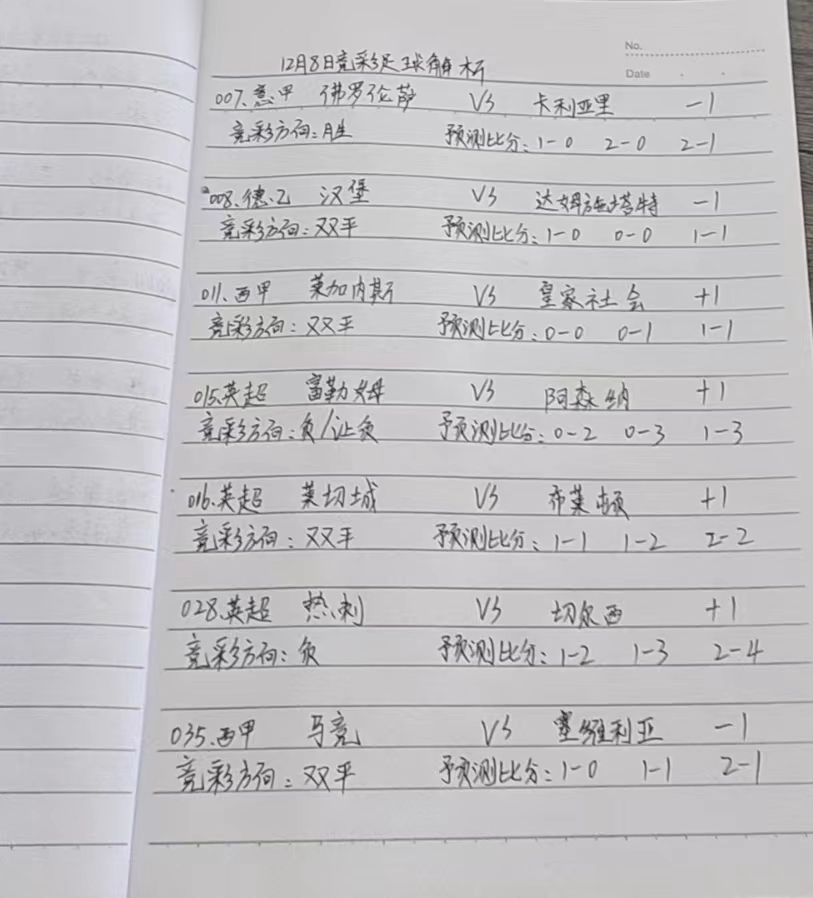 No.
12月8日竞彩足球解析
Date
007.意甲 佛罗伦萨 VS 卡利亚里 -1
竞彩方向:胜 预测比分:1-0 2-0 2-1
008.德乙 汉堡 VS 达姆施塔特 -1
竞彩方向:双平 预测比分:1-0 0-0 1-1
011.西甲 莱加内斯 VS 皇家社会 +1
竞彩方向:双平 预测比分:0-0 0-1 1-1
015.英超 富勒姆 VS 阿森纳 +1
竞彩方向:负/让负 预测比分:0-2 0-3 1-3
016.英超 莱切城 VS 布莱顿 +1
竞彩方向:双平 预测比分:1-1 1-2 2-2
028.英超 热刺 VS 切尔西 +1
竞彩方向:负 预测比分:1-2 1-3 2-4
035.西甲 马竞 VS 塞维利亚 -1
竞彩方向:双平 预测比分:1-0 1-1 2-1